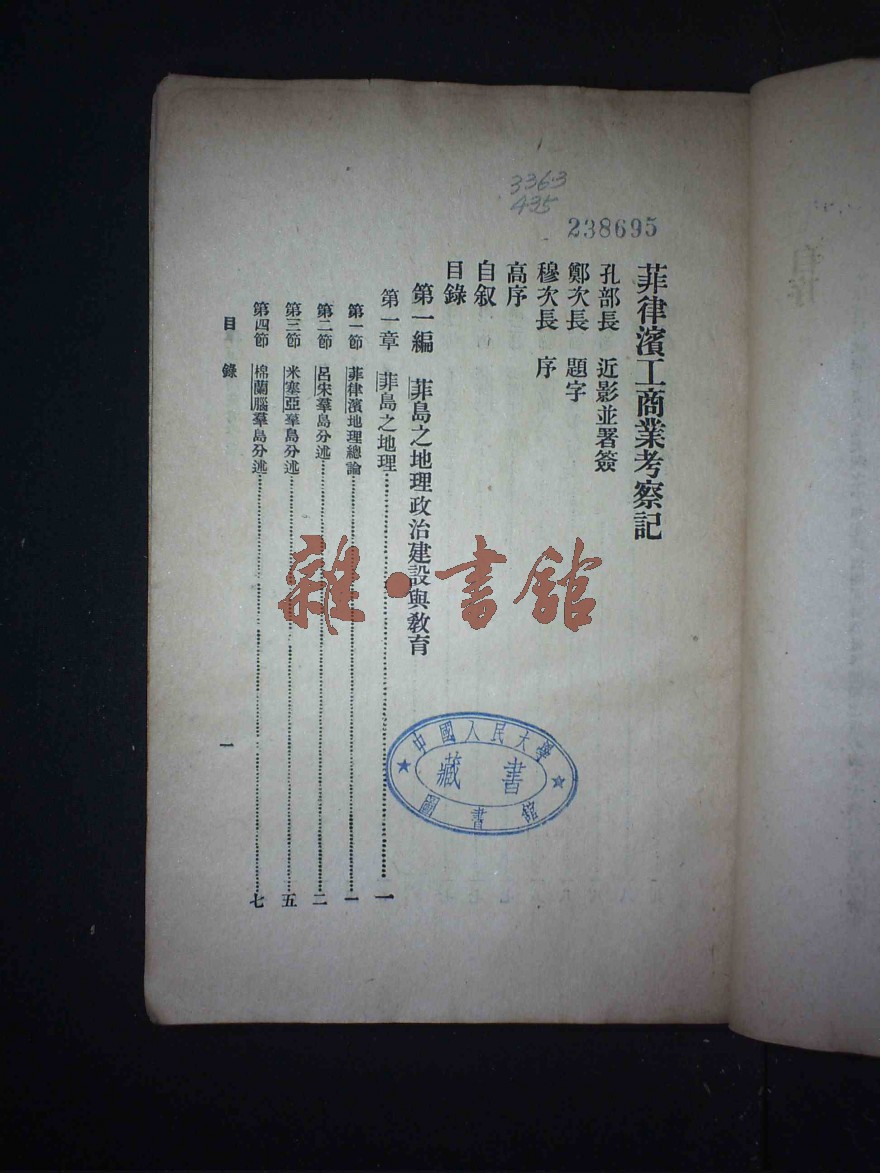 3363
435
238695
菲律濱工商業考察記
孔部長 近影並署簽
鄭次長 題字
穆次長 序
高序
自敘
目錄
第一編 菲島之地理政治建設與教育
第一章 菲島之地理……一
第一節 菲律濱地理總論……一
第二節 呂宋羣島分述……二
第三節 米塞亞羣島分述……五
第四節 棉蘭腦羣島分述……七
目錄
一
雜·書館
中國人民大學
藏書
圖書館